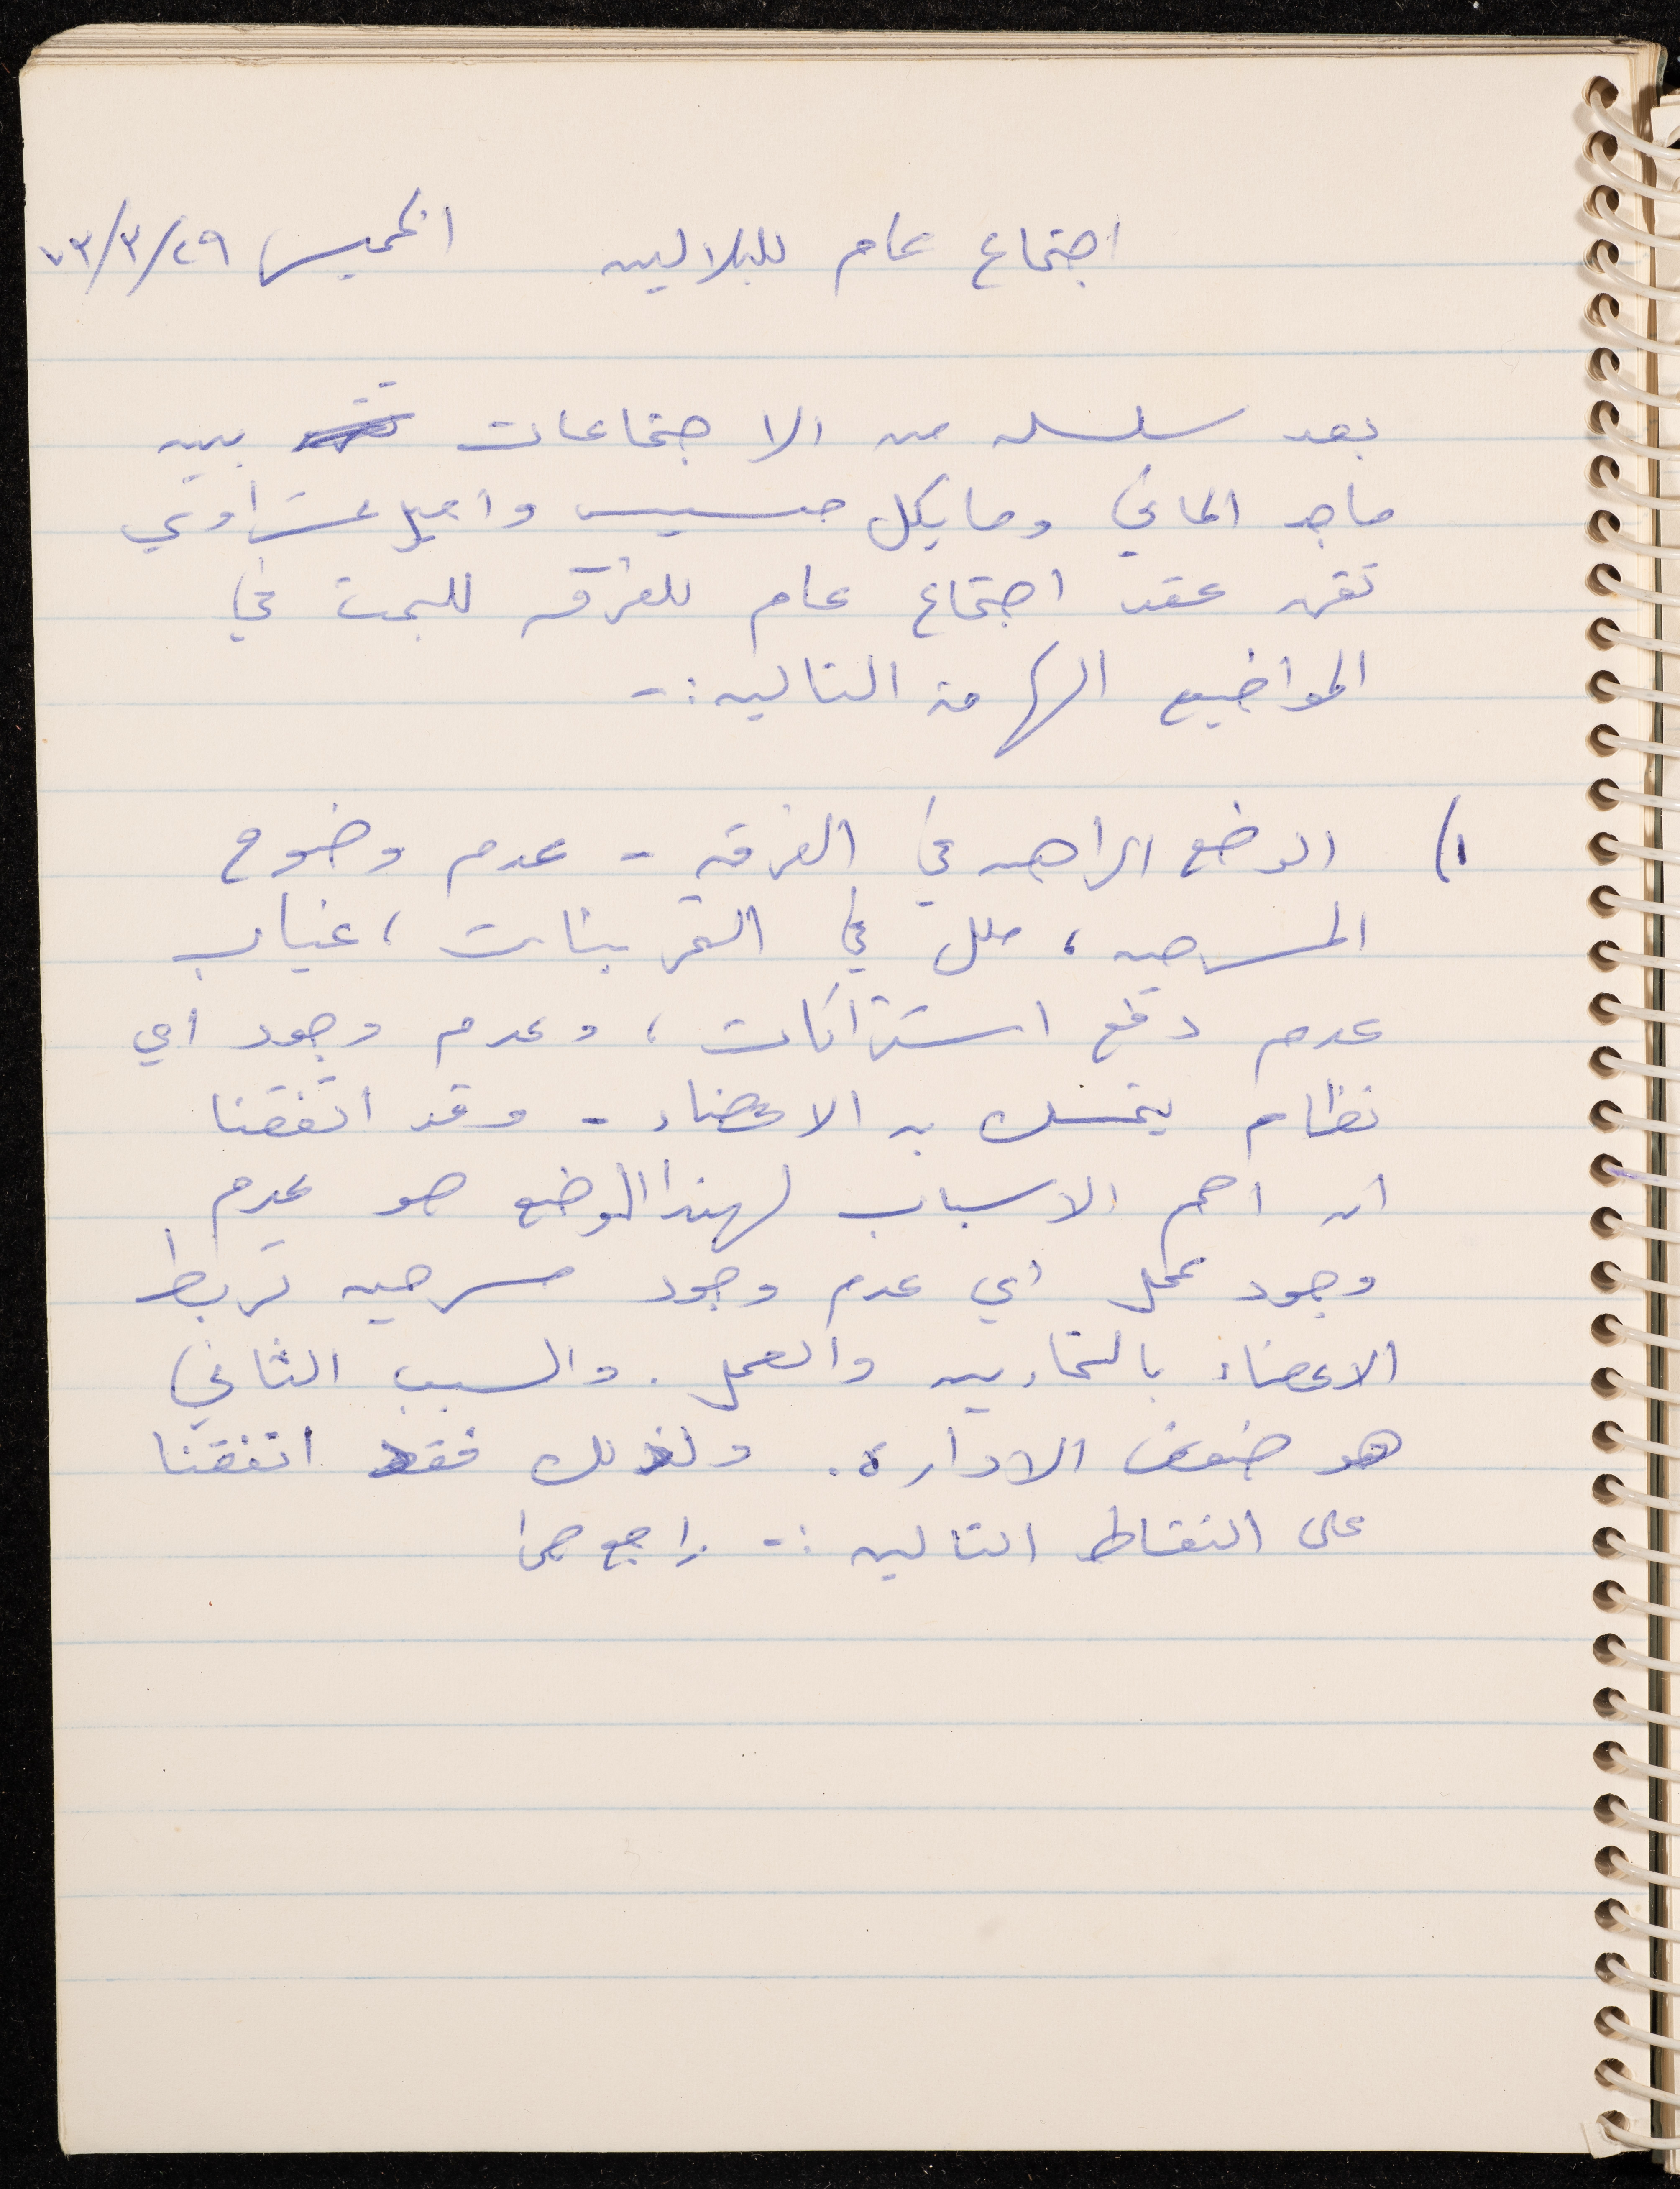 اجتماع عام للبلالين الخميس ٧٣/٣/٢٩
بعد سلسله من الاجتماعات بين
ماجد الماني ومايكل مسيس واميل عشراوي
تقرر عقد اجتماع عام للفرقه للبحث في
المواضيع الهامه التاليه :-
١) الوضع الراهن في الفرقه - عدم وضوح
المسرحيه ، ملل في التمرينات ، غياب
عدم دفع اشتراكات ، وعدم وجود اي
نظام يتمسك به الاعضاء - وقد اتفقنا
ان اهم الاسباب لهذا الوضع هو عدم
وجود عمل اي عدم وجود مسرحيه تربط
الاعضاء بالتمارين والعمل . والسبب الثاني
هو ضعف الاداره . ولذلك فقد اتفقنا
على النقاط التاليه :- راجع ص١